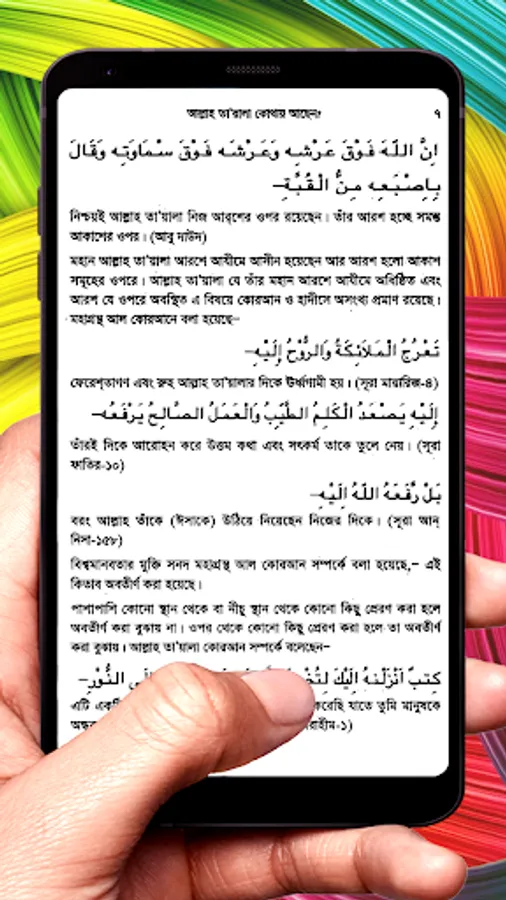 আল্লাহ তা'য়ালা কোথায় আছেন? ৭
اِنَّ اللّٰهَ فَوْقَ عَرْشِهِ وَعَرْشُه فَوْقَ سَمَاوَتِه وَقَالَ
بِاِصْبَعِهِ مِنُّ الْقُبَّةِ–
নিশ্চয়ই আল্লাহ তা'য়ালা নিজ আর্‌শের ওপর রয়েছেন। তাঁর আরশ হচ্ছে সমস্ত
আকাশের ওপর। (আবু দাউদ)
মহান আল্লাহ তা'য়ালা আরশে আযীমে আসীন হয়েছেন আর আরশ হলো আকাশ
সমূহের ওপরে। আল্লাহ তা'য়ালা যে তাঁর মহান আরশে আযীমে অধিষ্ঠিত এবং
আরশ যে ওপরে অবস্থিত এ বিষয়ে কোরআন ও হাদীসে অসংখ্য প্রমাণ রয়েছে।
মহাগ্রন্থ আল কোরআনে বলা হয়েছে–
تَعْرُجُ الْمَلَائِكَةُ وَالرُّوْحُ اِلَيْهِ–
ফেরেশ্‌তাগণ এবং রুহ আল্লাহ তা'য়ালার দিকে উর্ধ্বগামী হয়। (সূরা মায়ারিজ-৪)
اِلَيْهِ يَصْعَدُ الْكَلِمُ الطَّيِّبُ وَالْعَمَلُ الصَّالِحُ يَرْفَعُه–
তাঁরই দিকে আরোহন করে উত্তম কথা এবং সৎকর্ম তাকে তুলে নেয়। (সূরা
ফাতির-১০)
بَلْ رَّفَعَهُ اللّٰهُ اِلَيْهِ–
বরং আল্লাহ তাঁকে (ঈসাকে) উঠিয়ে নিয়েছেন নিজের দিকে। (সূরা আন্
নিসা-১৫৮)
বিশ্বমানবতার মুক্তি সনদ মহাগ্রন্থ আল কোরআন সম্পর্কে বলা হয়েছে,– এই
কিতাব অবতীর্ণ করা হয়েছে।
পাশাপাশি কোনো স্থান থেকে বা নীচু স্থান থেকে কোনো কিছু প্রেরণ করা হলে
অবতীর্ণ করা বুঝায় না। ওপর থেকে কোনো কিছু প্রেরণ করা হলে তা অবতীর্ণ
করা বুঝায়। আল্লাহ তা'য়ালা কোরআন সম্পর্কে বলেছেন–
كِتٰبٌ اَنْزَلْنٰهُ اِلَيْكَ الَى النُّوْرِ–
এটি করেছি যাতে তুমি মানুষকে